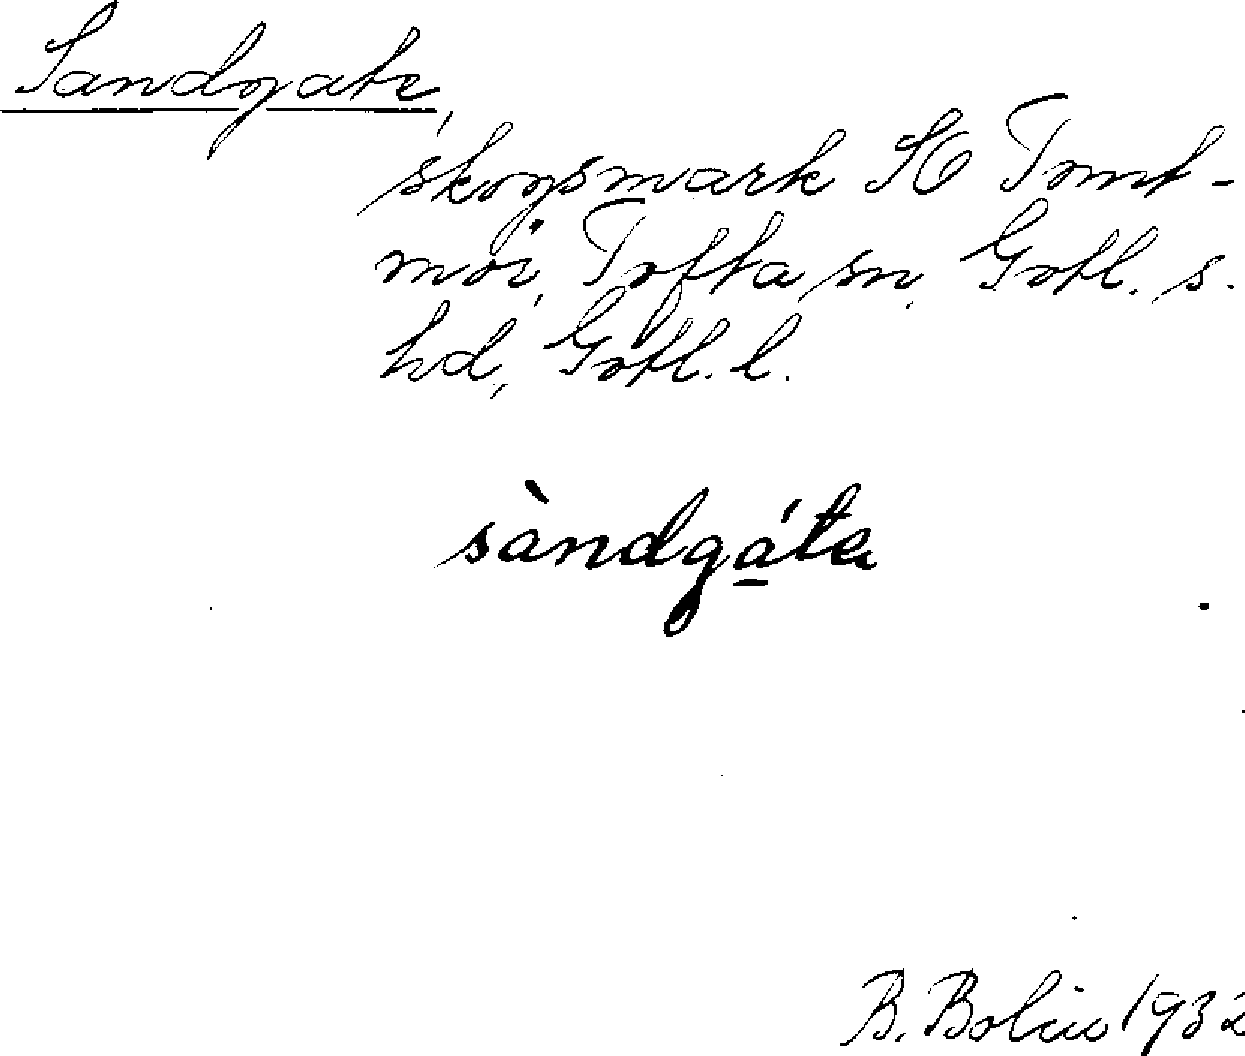 Sandgate,
skogsmark SO Tomt-
moi, Tofta sn, Gotl. s.
hd, Gotl. l.
sàndgáta
B. Bolin 1932